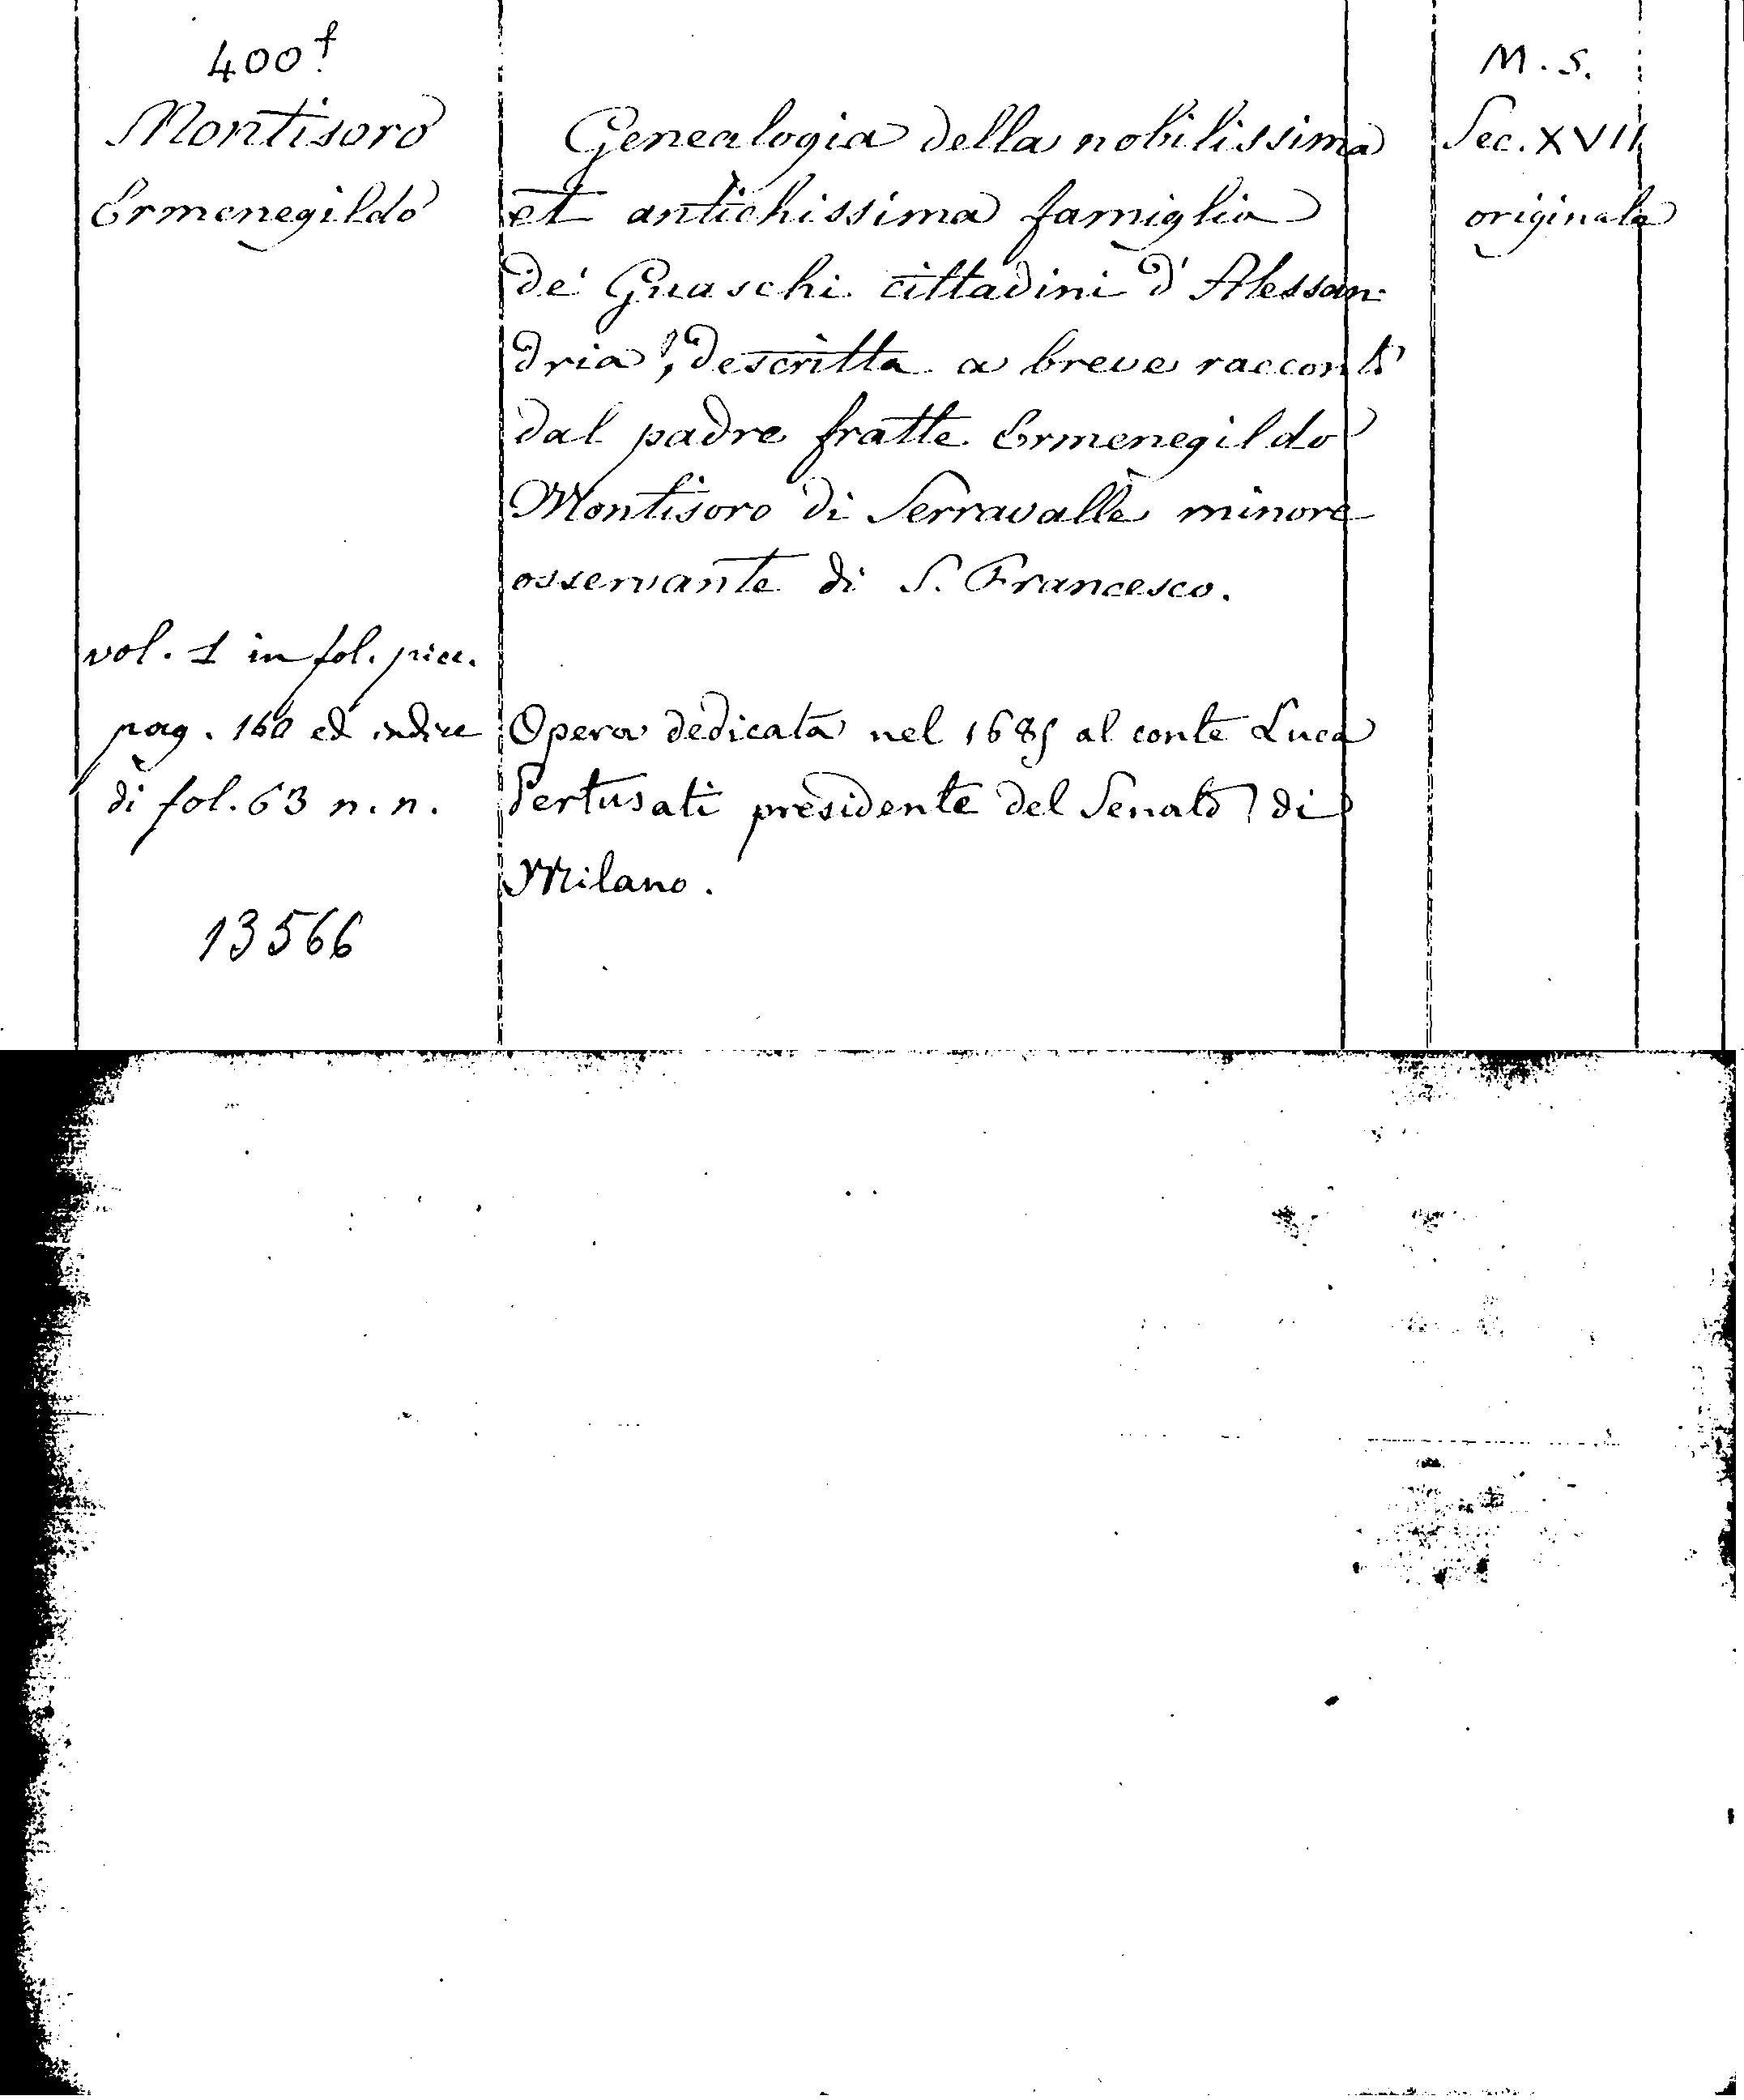 400 f.
Montisoro
Ermenegildo
vol. 1 in fol. picc.
pag. 160 ed indice
di fol. 63 n. n.
13566
Genealogia della nobilissima
et antichissima famiglia
de' Guaschi cittadini d'Alessan-
dria, descritta a breve racconti
dal padre fratte Ermenegildo
Montisoro di Serravalle minore
osservante di S. Francesco.
Opera dedicata nel 1685 al conte Luca
Pertusati presidente del Senato di
Milano.
M. S.
Sec. XVII
originale